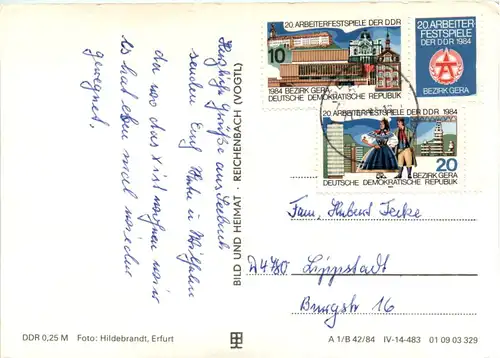 Herzliche Grüße aus Seebach
senden Euch
da wo das X ist wohnen wir
es hat eben mal
geregnet.
BILD UND HEIMAT · REICHENBACH (VOGTL)
20. ARBEITERFESTSPIELE DER DDR
10
1984 BEZIRK GERA
DEUTSCHE DEMOKRATISCHE REPUBLIK
20. ARBEITER
FESTSPIELE
DER DDR 1984
BEZIRK GERA
20. ARBEITERFESTSPIELE DER DDR 1984
20
BEZIRK GERA
DEUTSCHE DEMOKRATISCHE REPUBLIK
Fam. Hubert
D4780 Lippstadt
Burgstr 16
DDR 0,25 M Foto: Hildebrandt, Erfurt
A 1/B 42/84 IV-14-483 01 09 03 329